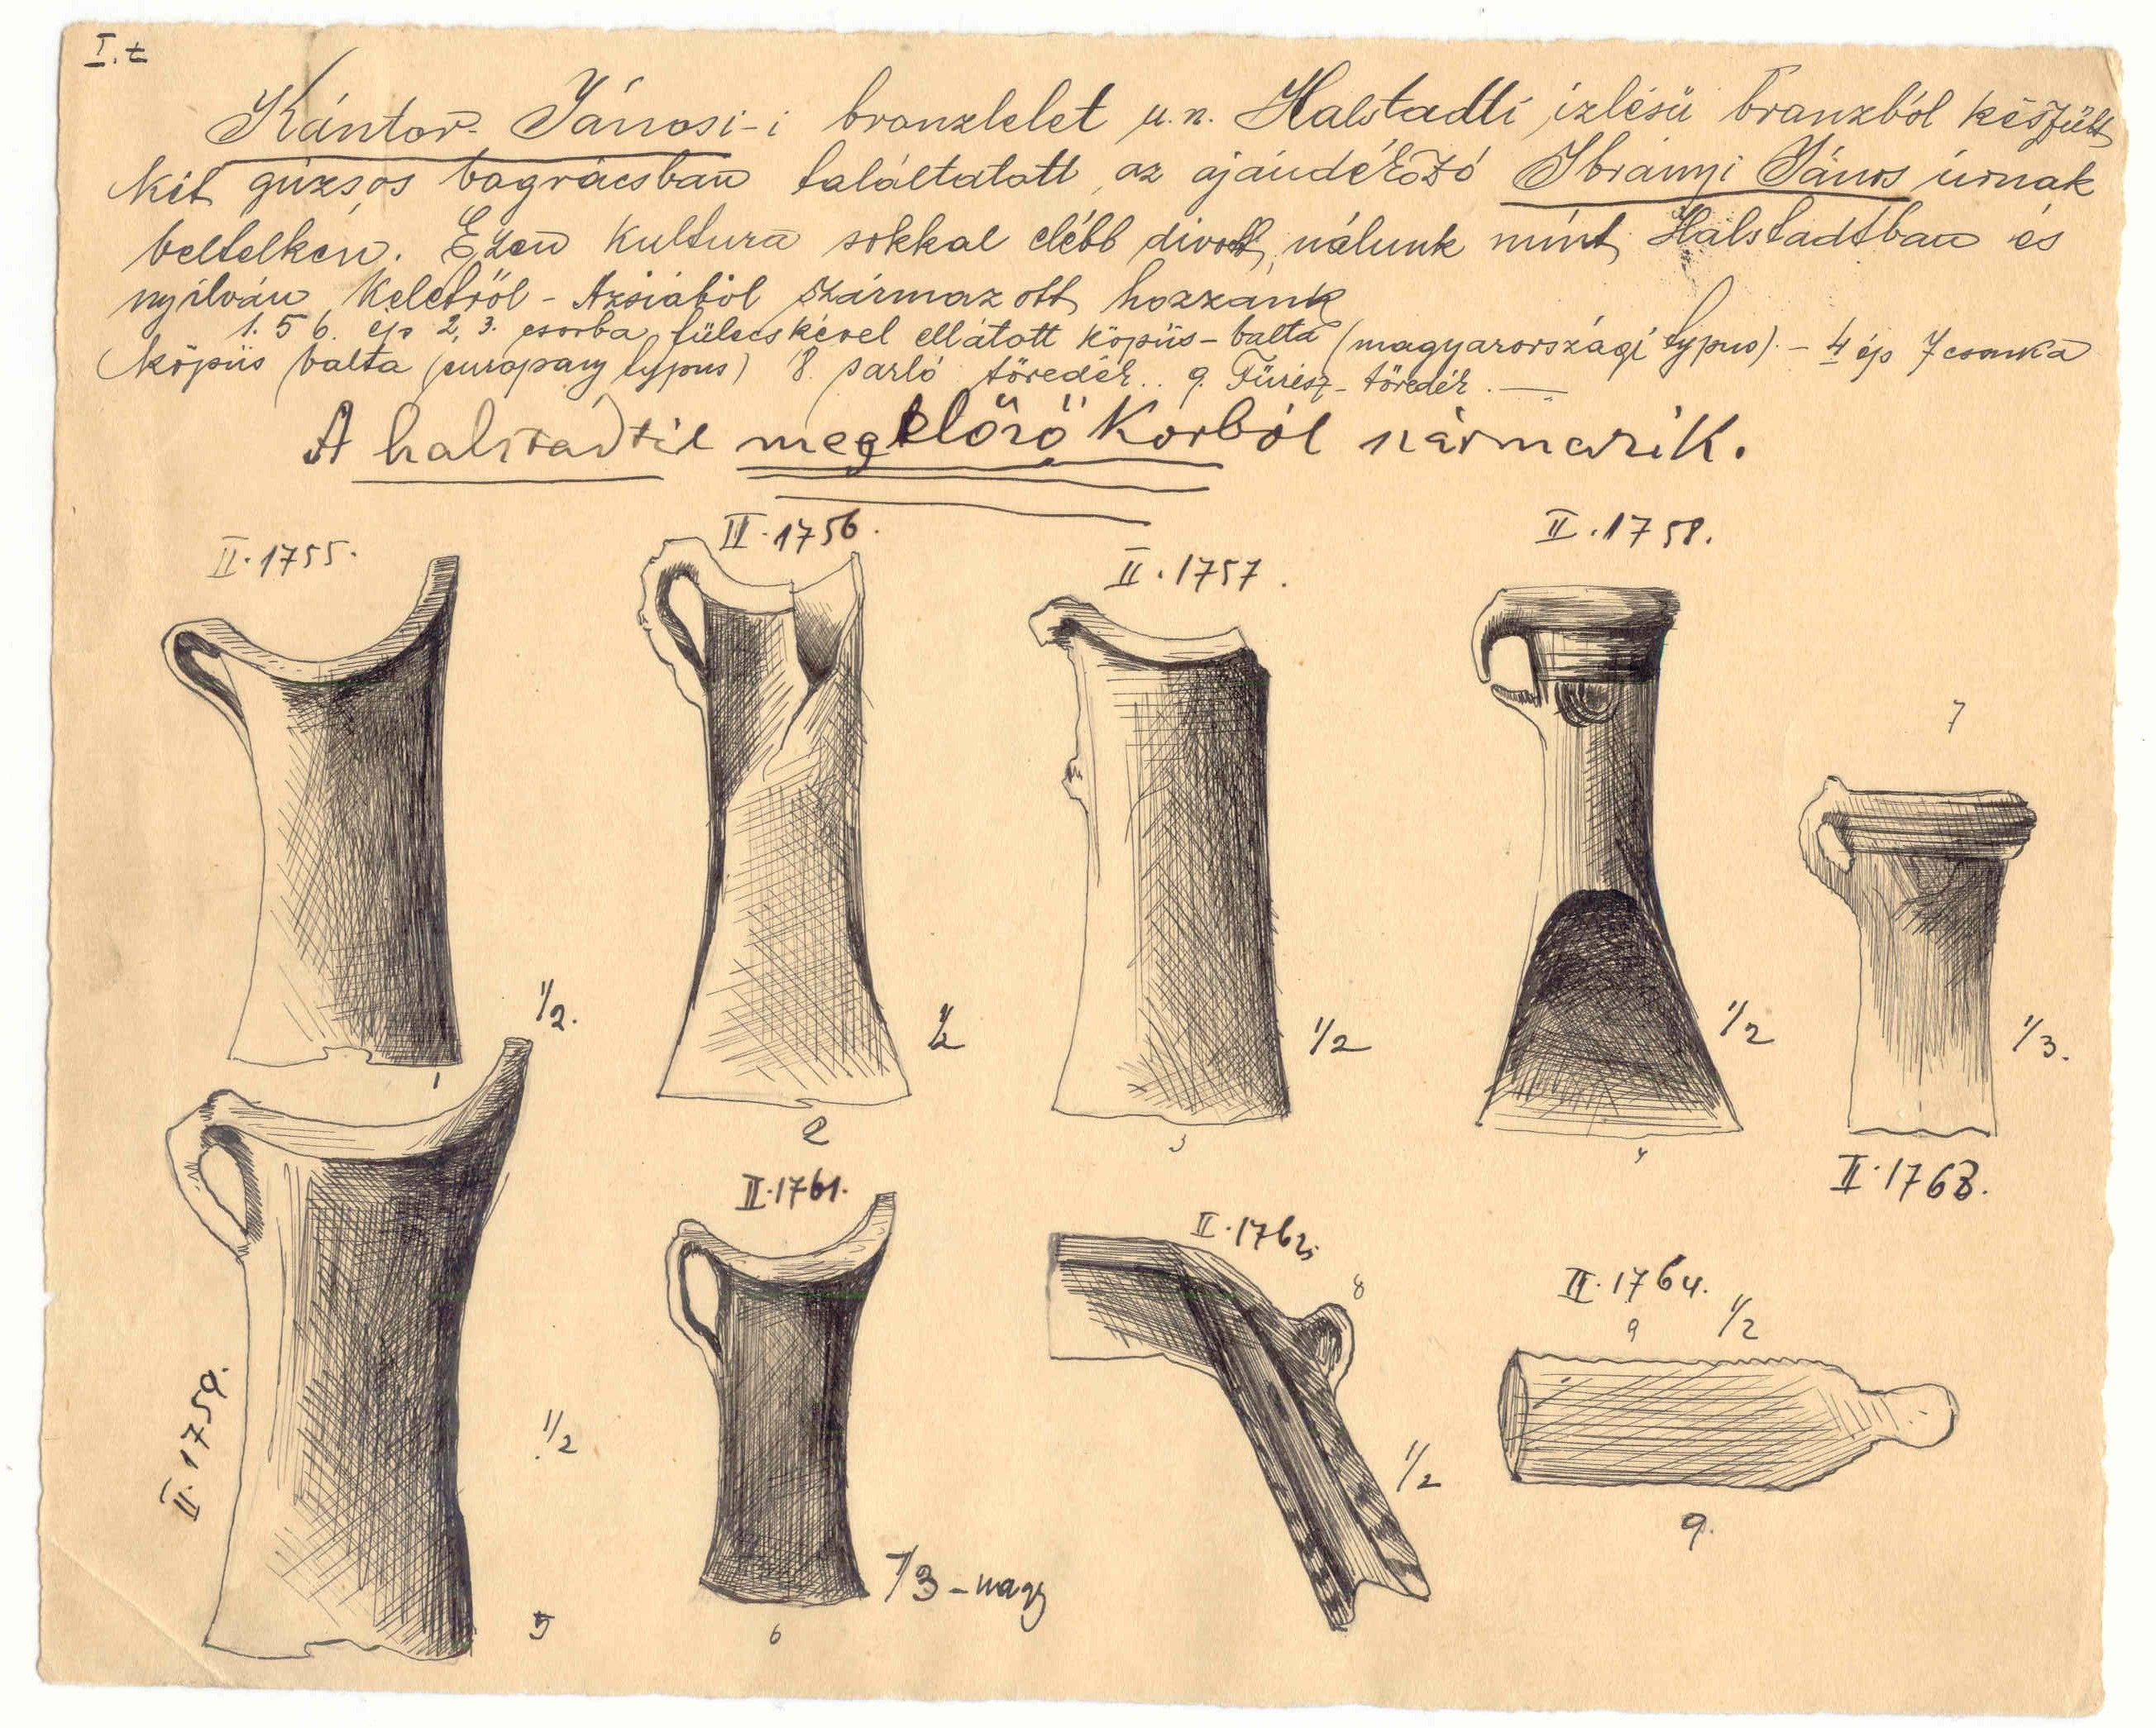 I. t
Kántor-Jánosi-i bronzlelet u.n. Halstadti izlésü bronzból készült
két gúzsos bográcsban találtatott, az ajándékozó Ibrányi János úrnak
beltelkén. Ezen kultura sokkal elébb divott, nálunk mint Halstadtban és
nyilván Keletről - Azsiából származott hozzank
1. 5 6. ép 2, 3. csorba, fülecskével ellátott köpüs-balta (magyarországi typus). - 4 ép 7 csonka
köpüs balta (europany typus) 8. sarló töredék.. 9. Fürész-töredék. —
A halstadtit megelőző korból származik.
II. 1755.
II. 1756.
II. 1757.
II. 1758.
7
1/2.
1/2
1/2
1/2
1/3.
1
2
3
4
II. 1763.
II. 1761.
II. 1762.
8
II. 1764.
9
1/2
II. 1759.
1/2
1/2
9.
1/3 - nagy
5
6